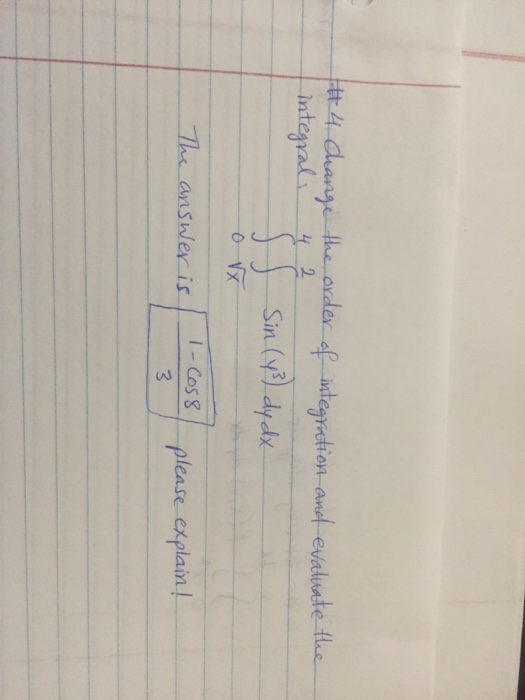 #4 change the order of integration and evaluate the
integral,
4 2
∫ ∫ Sin (y³) dy dx
0 √x
The answer is 1 - Cos 8 / 3 please explain!